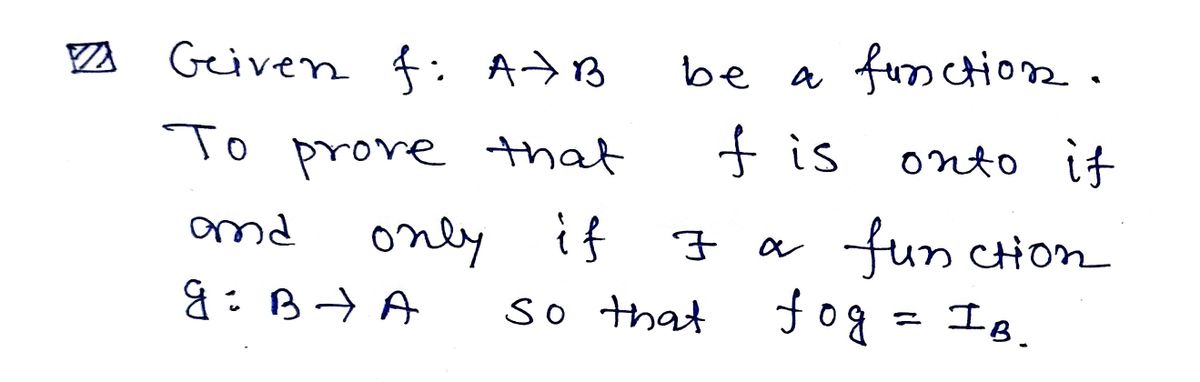 Given f: A→B be a function.
To prove that f is onto if
and only if ∃ a function
g: B→A so that fog = I_B.